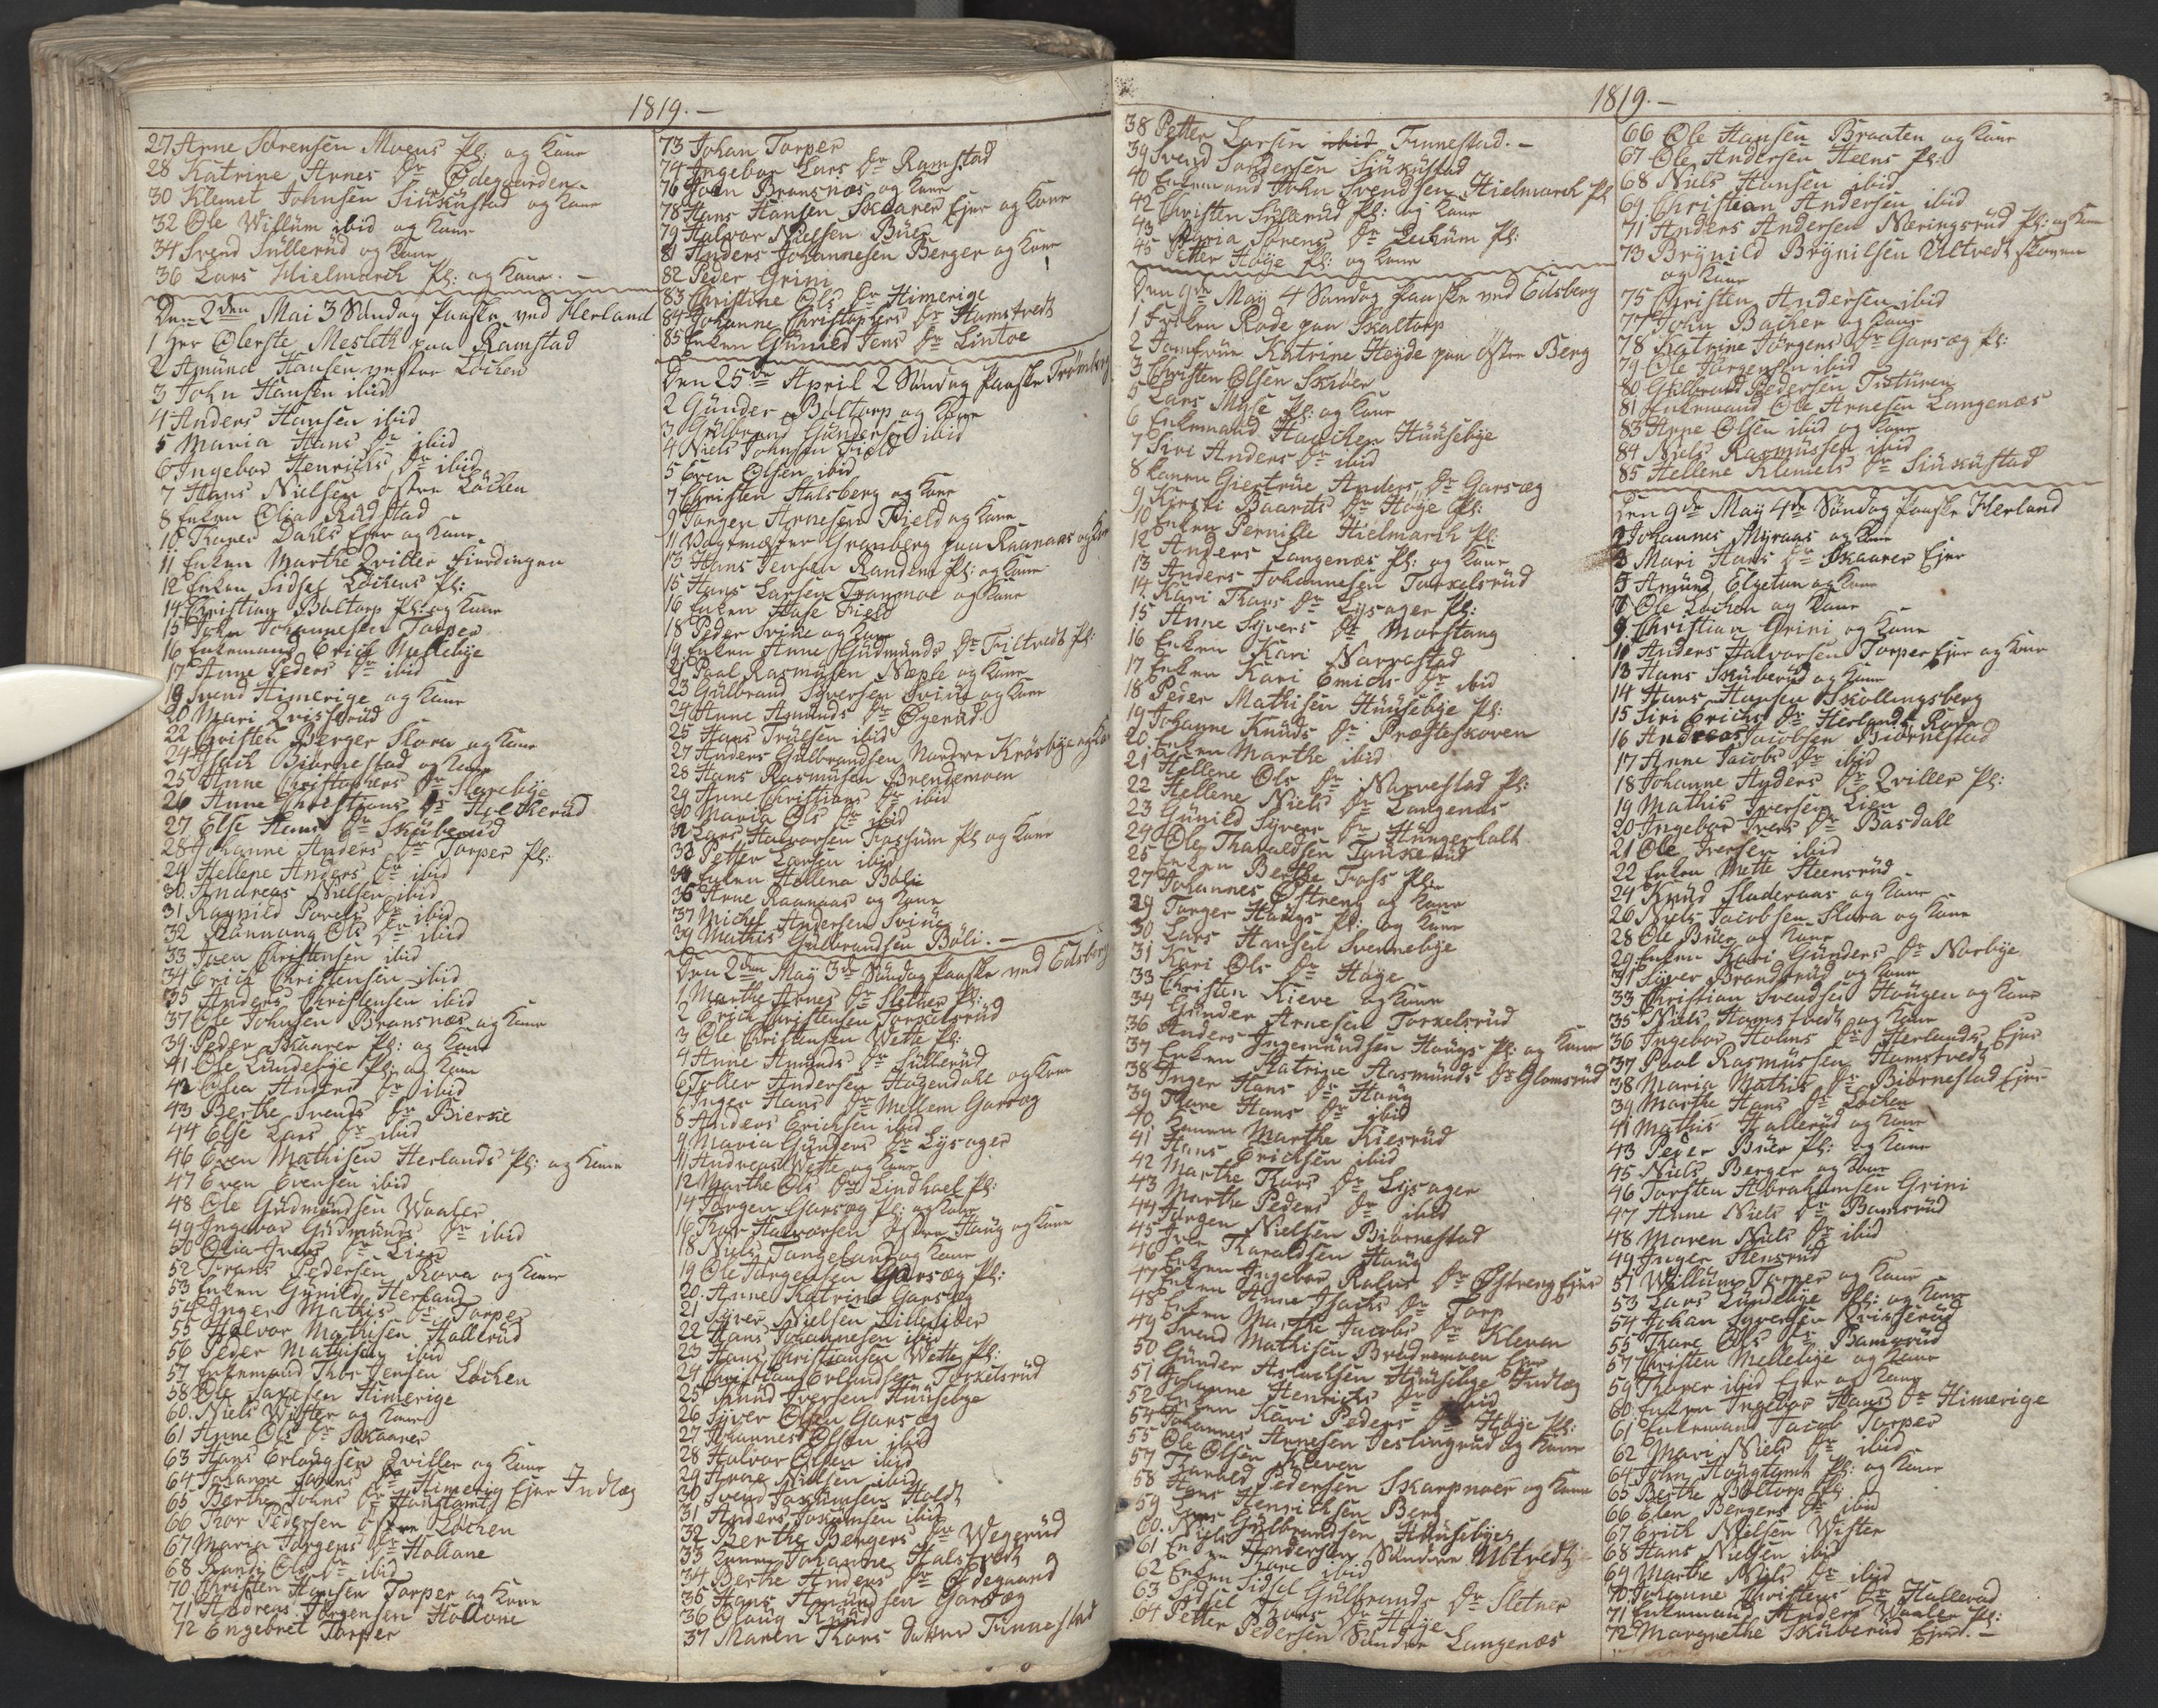 1819.-
27 Arne Sørensen Moens Pl: og Kone
28 Katrine Arnes Dr Ødegaarden
30 Klemet Johnsen Siükustad og Kone
32 Ole Willüm ibid og Kone
34 Svend Süllerüd og Kone
36 Lars Hielmarck Pl: og Kone. -
Den 2den Mai 3 Søndag Paaske ved Herland
1 Hr Olerste Mesleth paa Ramstad
2 Amünd Hansen vestre Løchen
3 John Hansen ibid
4 Anders Hansen ibid
5 Maria Hans Dr ibid
6 Ingebor Henrichs Dr ibid
7 Hans Nielsen østre Løchen
8 Enken Olia Rudstad
10 Dahls Ejer og Kone
11 Enken Marthe Qviller Fierdingen
12 Enken Sidsel Løchens Pl:
14 Christian Boltorp Pl: og Kone
15 John Johannesen Torper
16 Enkemand Erich Mellebye
17 Anne Peders Dr ibid
19 Svend Himerige og Kone
20 Mari Qvisserüd
22 Christen Berger Slora og Kone
24 Isach Biørnestad og Kone
25 Anne Christophers Dr Harebye
26 Anne Christians Dr Holtkerüd
27 Else Hans Dr Sküberüd
28 Johanne Anders Dr Torper Pl:
29 Hellene Anders Dr ibid
30 Andreas Nielsen ibid
31 Ragnild Povels Dr ibid
32 Rannaug Ols Dr ibid
33 Iven Christensen ibid
34 Erich Christensen ibid
35 Anders Christensen ibid
37 Ole Johnsen Bransnæs og Kone
39 Peder Skaarer Pl: og Kone
41 Ole Lündebye Pl: og Kone
42 Olia Anders Dr ibid
43 Berthe Svends Dr Bierke
44 Else Lars Dr ibid
46 Even Mathisen Herlands Pl: og Kone
47 Even Evensen ibid
48 Ole Gudmündsen Waaler
49 Ingebor Gudmünds Dr ibid
50 Olia Ivers Dr Lien
52 Frans Pedersen Rova og Kone
53 Enken Günild Herland
54 Inger Mathis Dr Torper
55 Halvor Mathisen Hallerüd
56 Peder Mathisen ibid
57 Enkemand Thor Jensen Løchen
58 Ole Himerige
60 Niels Wister og Kone
61 Anne Ols Dr Skaarer
63 Hans Erlaugsen Qviller og Kone
64 Johanne Dr Himerig Ejer Indlæg
65 Berthe Johns Dr Haugtomt
66 Thor Pedersen østre Løchen
67 Maria Jørgens Dr Hollane
68 Randi Ols Dr ibid
70 Christen Hansen Torper og Kone
71 Andreas Jørgensen Hollone
72 Engebret Torper
73 Johan Torper
74 Ingebor Lars Dr Ramstad
76 John Bransnæs og Kone
78 Hans Hansen Skaarer Ejer og Kone
79 Halvor Nielsen Büer
81 Anders Johannesen Berger og Kone
82 Peder Grini
83 Christine Ols Dr Himerige
84 Johanne Christophers Dr Hamstvedt
85 Enken Günild Jens Dr Lintoe
Den 25de April 2 Søndag Paaske Trømborg
2 Günder Boltorp og Kone
3 Gülbrand Gündersen ibid
4 Niels Johnsen Field
5 Even Olsen ibid
7 Christen Halsberg og Kone
9 Jørgen Arnesen Field og Kone
11 Vagtmæster Granberg paa Raanaas og Kone
13 Hans Jensen Randens Pl: og Kone
15 Hans Larsen og Kone
16 Enken Aase Field
18 Peder Sviue og Kone
19 Enken Anne Gudmünds Dr Filtvedt Pl:
21 Paal Rasmusen Næple og Kone
23 Gülbrand Siversen Sviüe og Kone
24 Anne Amünds Dr Øgerüd
25 Hans Truelsen ibid
27 Anders Gülbrandsen Nordre Krosbye og Kone
28 Hans Rasmusen Brendemoen
29 Anne Christians Dr ibid
30 Maria Ols Dr ibid
32 Lars Halvorsen Frosshüm Pl og Kone
33 Petter Larsen ibid
34 Enken Hellena Bøli
36 Arne Raanaas og Kone
37 Michel Andersen Sviüe
39 Mathis Gülbrandsen Bøli. -
Den 2den May 3de Søndag Paaske ved Edsberg
1 Marthe Arnes Dr Slether Pl:
2 Erich Christensen Torkelsrüd
3 Ole Christensen Wette Pl:
4 Anne Amünds Dr Süllerüd
6 Toller Andersen Hagendahl og Kone
7 Inger Hans Dr Mellem Garsæg
8 Anders Erichsen ibid
9 Maria Günders Dr Lysager
11 Andreas Wette og Kone
12 Marthe Ols Dr Lindhoel Pl:
14 Jørgen Garsæg Pl: og Kone
16 Thor Halvorsen østre Haug og Kone
18 Niels Tangeland og Kone
19 Ole Jørgensen Garsæg Pl:
20 Anne Katrine Garsæg
21 Syver Nielsen
22 Hans Johannesen ibid
23 Hans Christiansen Wette Pl:
24 Christian Erlandsen Torkelsrüd
25 Knud Iversen Huüsebye
26 Syver Olsen Garsæg
27 Johannes Olsen ibid
28 Halvor Olsen ibid
29 Arne Nielsen ibid
30 Svend Joakimsen Holdt
31 Anders Joakimsen ibid
32 Berthe Bergers Dr Wegerüd
33 Konen Johanne Halstvedt
34 Berthe Anders Dr Ødegaard
35 Hans Amündsen Garsæg
36 Olaug Knüd
37 Maren Thors datter Finnestad
1819.-
38 Petter Larsen Finnestad. -
39 Svend Siükustad
40 Enkemand John Svendsen Hielmarck Pl
42 Christen Süllerüd Pl: og Kone
43 Maria Sørens Dr Lechüm Pl:
45 Petter Høije Pl: og Kone
Den 9de May 4 Søndag Paaske ved Edsberg
1 Frøken Rode paa Skaltorp
2 Jomfrue Katrine Høyde paa Østre Berg
3 Christen Olsen Skiøer
5 Lars Myse Pl: og Kone
6 Enkemand Haachen Huüsebye
7 Siri Anders Dr ibid
8 Konen Giertrüe Anders Dr Garsæg
9 Kirsti Baards Dr Høije Pl:
10 Enken Pernille Hielmarck Pl:
12 Anders Langenæs Pl: og Kone
13 Anders Johannesen Torkelsrüd
14 Kari Thors Dr Lysager Pl:
15 Anne Syvers Dr Morstang
16 Enken Kari Narvestad
17 Enken Kari Emichs Dr ibid
18 Peder Mathisen Huüsebye Pl:
19 Johanne Knüds Dr Præsteskoven
20 Enken Marthe ibid
21 Hellene Ols Dr Narvestad Pl:
22 Hellene Niels Dr Langenæs
23 Günild Syvers Dr Hüngerholt
24 Ole Tharaldsen Torkerüd
25 Enken Berthe Foss Pl:
27 Johannes Østreng og Kone
29 Torger Haugs Pl: og Kone
30 Lars Hansen Svennebye
31 Kari Ols Dr Høije
33 Christen Kieve og Kone
34 Günder Arnesen Torkelsrüd
36 Anders Ingemündsen Haugs Pl: og Kone
37 Enken Katrine Aasmünds Dr Glomsrüd
38 Inger Hans Dr Haug
39 Thore Hans Dr ibid
40 Konen Marthe Kiesrüd
41 Hans Erichsen ibid
42 Marthe Thors Dr Lysager
43 Marthe Peders Dr ibid
44 Jørgen Nielsen Biørnestad
45 Iver Tharaldsen Haug
46 Enken Ingebor Dr Østreng Ejer
47 Enken Anne Isachs Dr Torp
48 Enken Marthe Jacobs Dr Kleven
49 Svend Mathisen
50 Günder Aslachsen Huüsebye Indlæg
51 Johanne Henrichs Dr ibid
52 Enken Kari Peders Dr Høije Pl:
54 Johannes Arnesen Jeslingrüd og Kone
55 Ole Olsen Kleven
57 Tharald Pedersen Skarpnoer og Kone
58 Hans Henrichsen Berg
59 Lars Gülbrandsen Huüsebye
60 Niels Andersen Søndre Ultvedt
61 Enken Thore ibid
62 Enken Sidsel Gülbrands Dr Sletner
63 Sidsel Thors Dr Høije
64 Petter Pedersen Søndre Langenæs
1819.-
66 Ole Hansen Braaten og Kone
67 Ole Andersen Heens Pl:
68 Niels Hansen ibid
69 Christian Andersen ibid
71 Anders Andersen Næringsrüd Pl: og Kone
73 Brynild Brynilsen Ultvedt skoven
og Kone
75 Christen Andersen ibid
77 John Bacher og Kone
78 Katrine Jørgens Dr Garsæg Pl:
79 Ole Jørgensen ibid
80 Gülbrand Pedersen
81 Enkemand Ole Arnesen Langenæs
83 Arne Olsen ibid og Kone
84 Niels Rasmüssen ibid
85 Hellene Klemets Dr Siükustad
Den 9de May 4de Søndag Paaske Herland
2 Johannes Myraas og Kone
3 Mari Hans Dr Skaarer Ejer
5 Amünd Elgetun og Kone
7 Ole Løchen og Kone
9 Christian Grini og Kone
11 Anders Halvorsen Torper Ejer og Kone
13 Hans Sküberüd og Kone
14 Hans Hansen Skollengsberg
15 Siri Erichs Dr Herlands Rova
16 Andreas Jacobsen Biørnestad
17 Anne Jacobs Dr ibid
18 Johanne Anders Dr Qviller Pl:
19 Mathis Iversen Lien
20 Ingebor Ivers Dr Basdahl
21 Ole Iversen ibid
22 Enken Mette Steensrüd
24 Knüd Sladeraas og Kone
26 Niels Jacobsen Slora og Kone
28 Ole Büer og Kone
29 Enken Kari Günders Dr Norbye
31 Syver Brandsrüd og Kone
33 Christian Svendsen Haugen og Kone
35 Niels Hamstvedt og Kone
36 Ingebor Holms Dr Herlands Ejer
37 Paal Rasmüssen Hamstvedt
38 Maria Mathis Dr Biørnestad Ejer
39 Marthe Hans Dr Løchen
41 Mathis Hallerüd og Kone
43 Peder Büer Pl: og Kone
45 Niels Berger og Kone
46 Torsten Abrahamsen Grini
47 Anne Niels Dr Bamsrüd
48 Maren Niels Dr ibid
49 Inger Stensrüd
51 Willüm Torper og Kone
53 Lars Lundebye Pl: og Kone
54 Johan Syversen Qvisserüd
55 Thore Ols Dr Bamsrüd
57 Christen Mellebye og Kone
59 Thorer ibid Ejer og Kone
60 Enken Ingebor Hans Dr Himerige
61 Enkemand Jacob Torper
62 Mari Niels Dr ibid
64 John Haugtomt Pl: og Kone
65 Berthe Boltorp Pl:
66 Elen Bergers Dr ibid
67 Erich Nielsen Wister
68 Hans Nielsen ibid
69 Marthe Niels Dr ibid
70 Johanne Christens Dr Hallerüd
71 Enkemand Anders Waaler Pl:
72 Margrethe Sküberüd Ejer. -